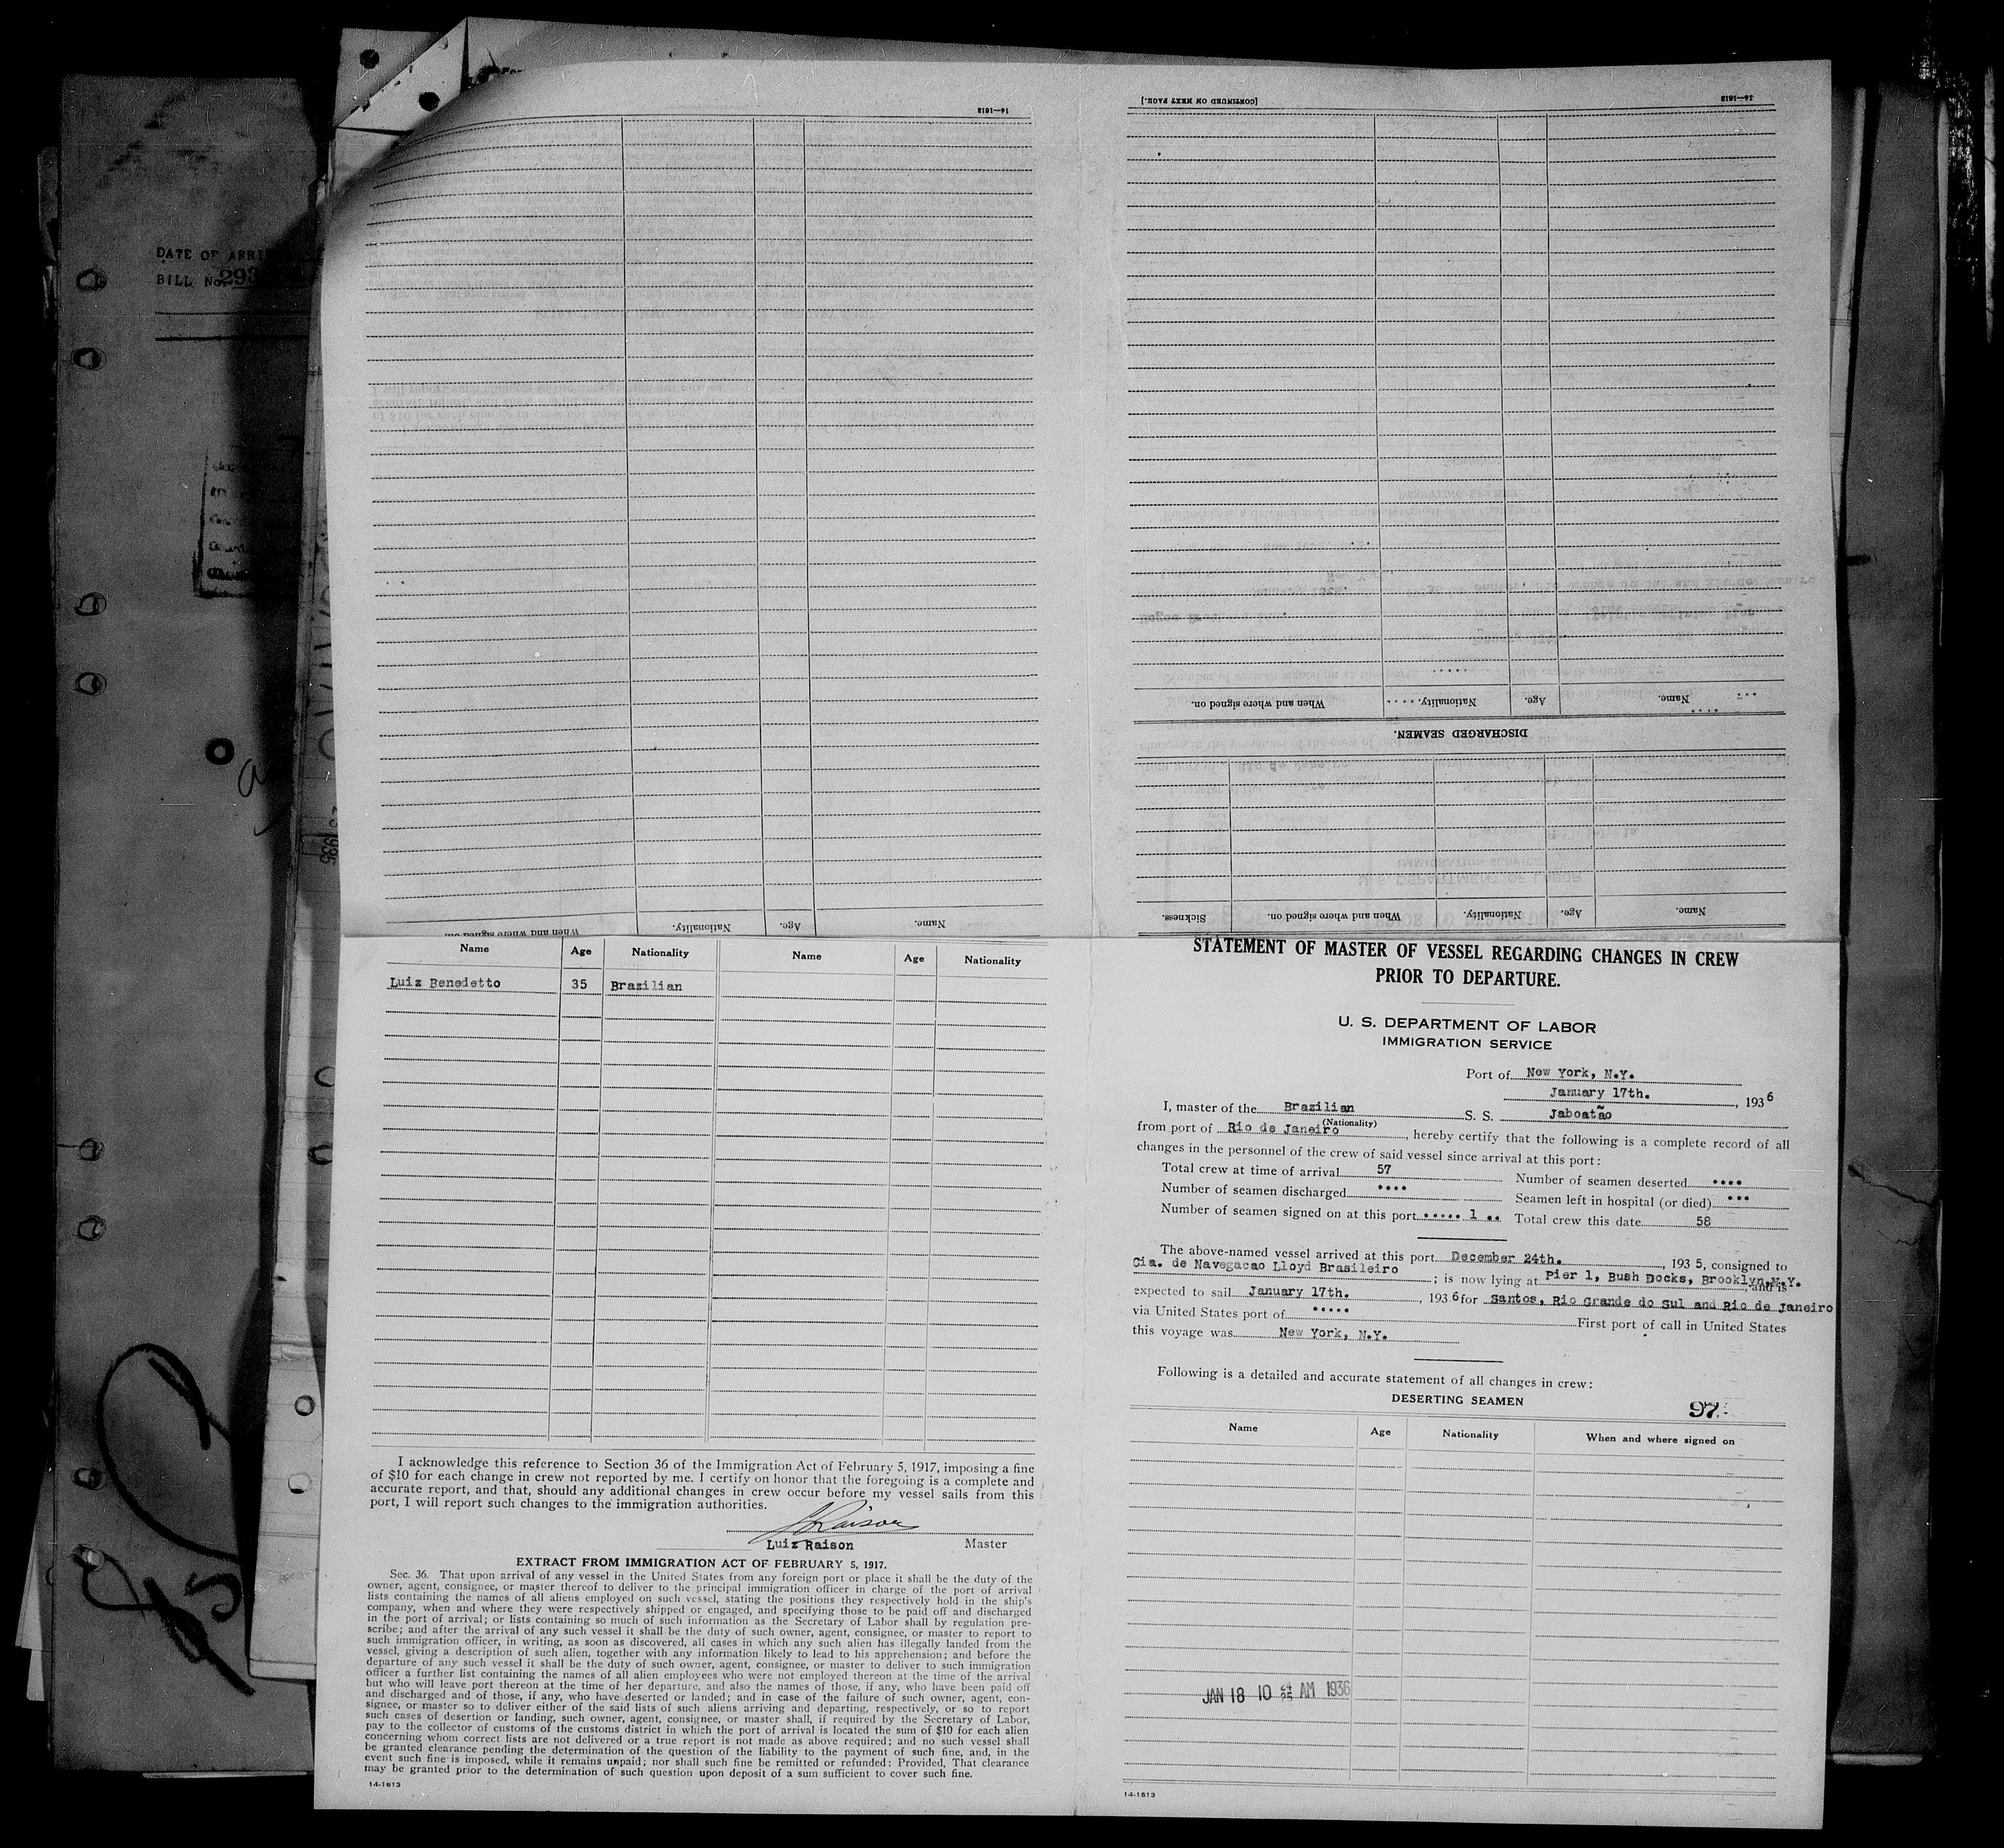 DATE OF ARRI
BILL No.
14—1613
[CONTINUED ON NEXT PAGE.]
14—1613
When and where signed on.
Nationality.
Age.
Name.
DISCHARGED SEAMEN.
Sickness.
When and where signed on.
Nationality.
Age.
Name.
When and where signed on.
Nationality.
Age.
Name.
Name Age Nationality Name Age Nationality
Luiz Benedetto 35 Brazilian
I acknowledge this reference to Section 36 of the Immigration Act of February 5, 1917, imposing a fine
of $10 for each change in crew not reported by me. I certify on honor that the foregoing is a complete and
accurate report, and that, should any additional changes in crew occur before my vessel sails from this
port, I will report such changes to the immigration authorities.
LRaison
Luiz Raison Master
EXTRACT FROM IMMIGRATION ACT OF FEBRUARY 5, 1917.
Sec. 36. That upon arrival of any vessel in the United States from any foreign port or place it shall be the duty of the
owner, agent, consignee, or master thereof to deliver to the principal immigration officer in charge of the port of arrival
lists containing the names of all aliens employed on such vessel, stating the positions they respectively hold in the ship's
company, when and where they were respectively shipped or engaged, and specifying those to be paid off and discharged
in the port of arrival; or lists containing so much of such information as the Secretary of Labor shall by regulation pre-
scribe; and after the arrival of any such vessel it shall be the duty of such owner, agent, consignee, or master to report to
such immigration officer, in writing, as soon as discovered, all cases in which any such alien has illegally landed from the
vessel, giving a description of such alien, together with any information likely to lead to his apprehension; and before the
departure of any such vessel it shall be the duty of such owner, agent, consignee, or master to deliver to such immigration
officer a further list containing the names of all alien employees who were not employed thereon at the time of the arrival
but who will leave port thereon at the time of her departure, and also the names of those, if any, who have been paid off
and discharged and of those, if any, who have deserted or landed; and in case of the failure of such owner, agent, con-
signee, or master so to deliver either of the said lists of such aliens arriving and departing, respectively, or so to report
such cases of desertion or landing, such owner, agent, consignee, or master shall, if required by the Secretary of Labor,
pay to the collector of customs of the customs district in which the port of arrival is located the sum of $10 for each alien
concerning whom correct lists are not delivered or a true report is not made as above required; and no such vessel shall
be granted clearance pending the determination of the question of the liability to the payment of such fine, and, in the
event such fine is imposed, while it remains unpaid; nor shall such fine be remitted or refunded: Provided, That clearance
may be granted prior to the determination of such question upon deposit of a sum sufficient to cover such fine.
14-1613
STATEMENT OF MASTER OF VESSEL REGARDING CHANGES IN CREW
PRIOR TO DEPARTURE.
U. S. DEPARTMENT OF LABOR
IMMIGRATION SERVICE
Port of New York, N.Y.
January 17th. , 1936
I, master of the Brazilian S. S. Jaboatão
(Nationality)
from port of Rio de Janeiro, hereby certify that the following is a complete record of all
changes in the personnel of the crew of said vessel since arrival at this port:
Total crew at time of arrival 57 Number of seamen deserted ....
Number of seamen discharged .... Seamen left in hospital (or died) ...
Number of seamen signed on at this port ..... 1 .. Total crew this date 58
The above-named vessel arrived at this port December 24th. , 1935, consigned to
Cia. de Navegacao Lloyd Brasileiro ; is now lying at Pier 1, Bush Docks, Brooklyn,N.Y. , and is
expected to sail January 17th. , 1936 for Santos, Rio Grande do Sul and Rio de Janeiro
via United States port of ..... First port of call in United States
this voyage was New York, N.Y.
Following is a detailed and accurate statement of all changes in crew:
DESERTING SEAMEN
97
Name Age Nationality When and where signed on
JAN 18 10 AM 1936
14-1613